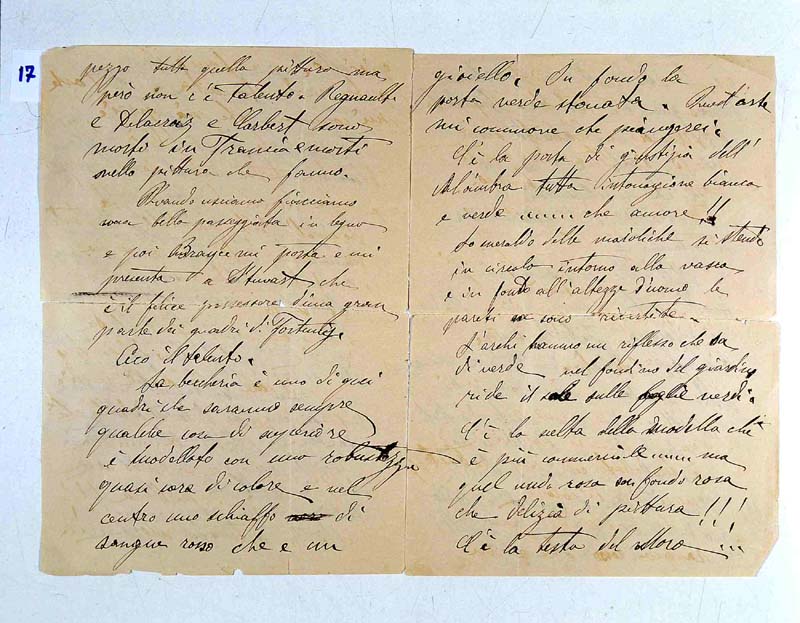 17
pezzo tutta quella pittura ma
però non c'è talento. Regnault
e Delacroix e Curbest sono
morti in Francia e morti
nella pittura che fanno.
Quando usciamo facciamo
una bella passeggiata in legno
e poi mi porta e mi
presenta a Stuvast che
è il felice possessore d'una gran
parte dei quadri di Fortuny.
Ecco il talento.
La beccheria è uno di quei
quadri che saranno sempre
qualche cosa di superiore
è modellato con una robustezza
quasi rara di colore e nel
centro uno schiaffo di
sangue rosso che è un
gioiello. In fondo la
porta verde stonata. Quest'arte
mi commove che piangerei.
C'è la porta di giustizia dell'
Alambra tutta intonazione bianca
e verde che amore!!
Lo smeraldo delle maioliche si stende
in circolo intorno alla vasca
e in fondo all'altezza d'uomo le
pareti ne sono rivestite.
L'archi hanno un riflesso che dà
di verde nel fondino del giardino
ride il sole sulle foglie verdi.
C'è la scelta della modella che
è più commerciale ma
quel nudo rosa son fondo rosa
che delizia di pittura!!!
C'è la testa del Moro ..!!